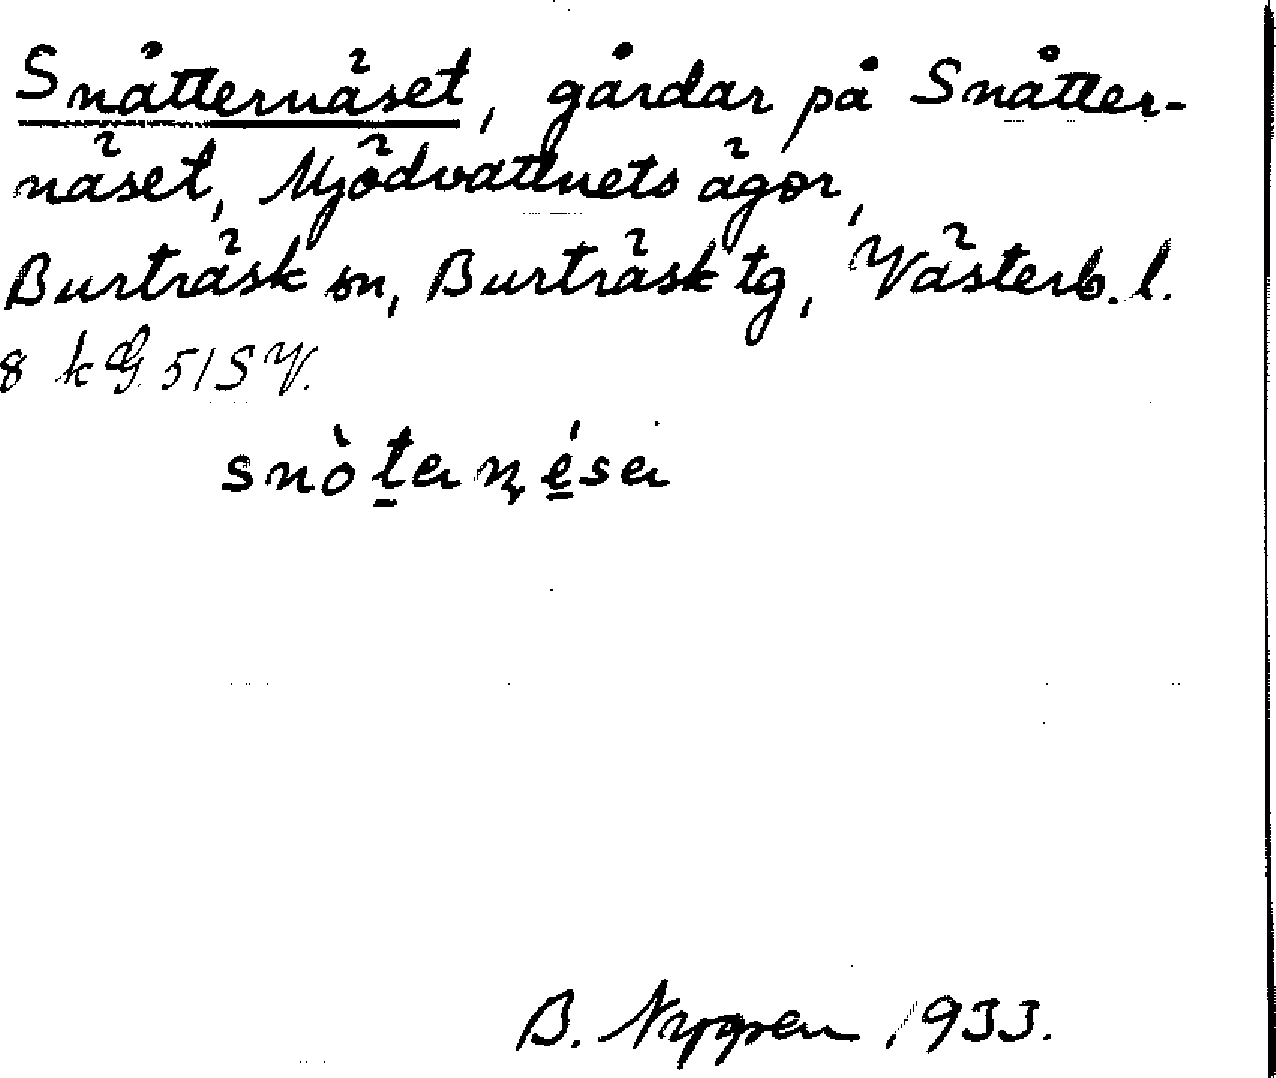 Snåtternäset, gårdar på Snåtter-
näset, Mjödvattnets ägor,
Burträsk sn, Burträsk tg, Västerb. l.
8 kG 51SV.
snòta ṇésa
B. Nygren 1933.